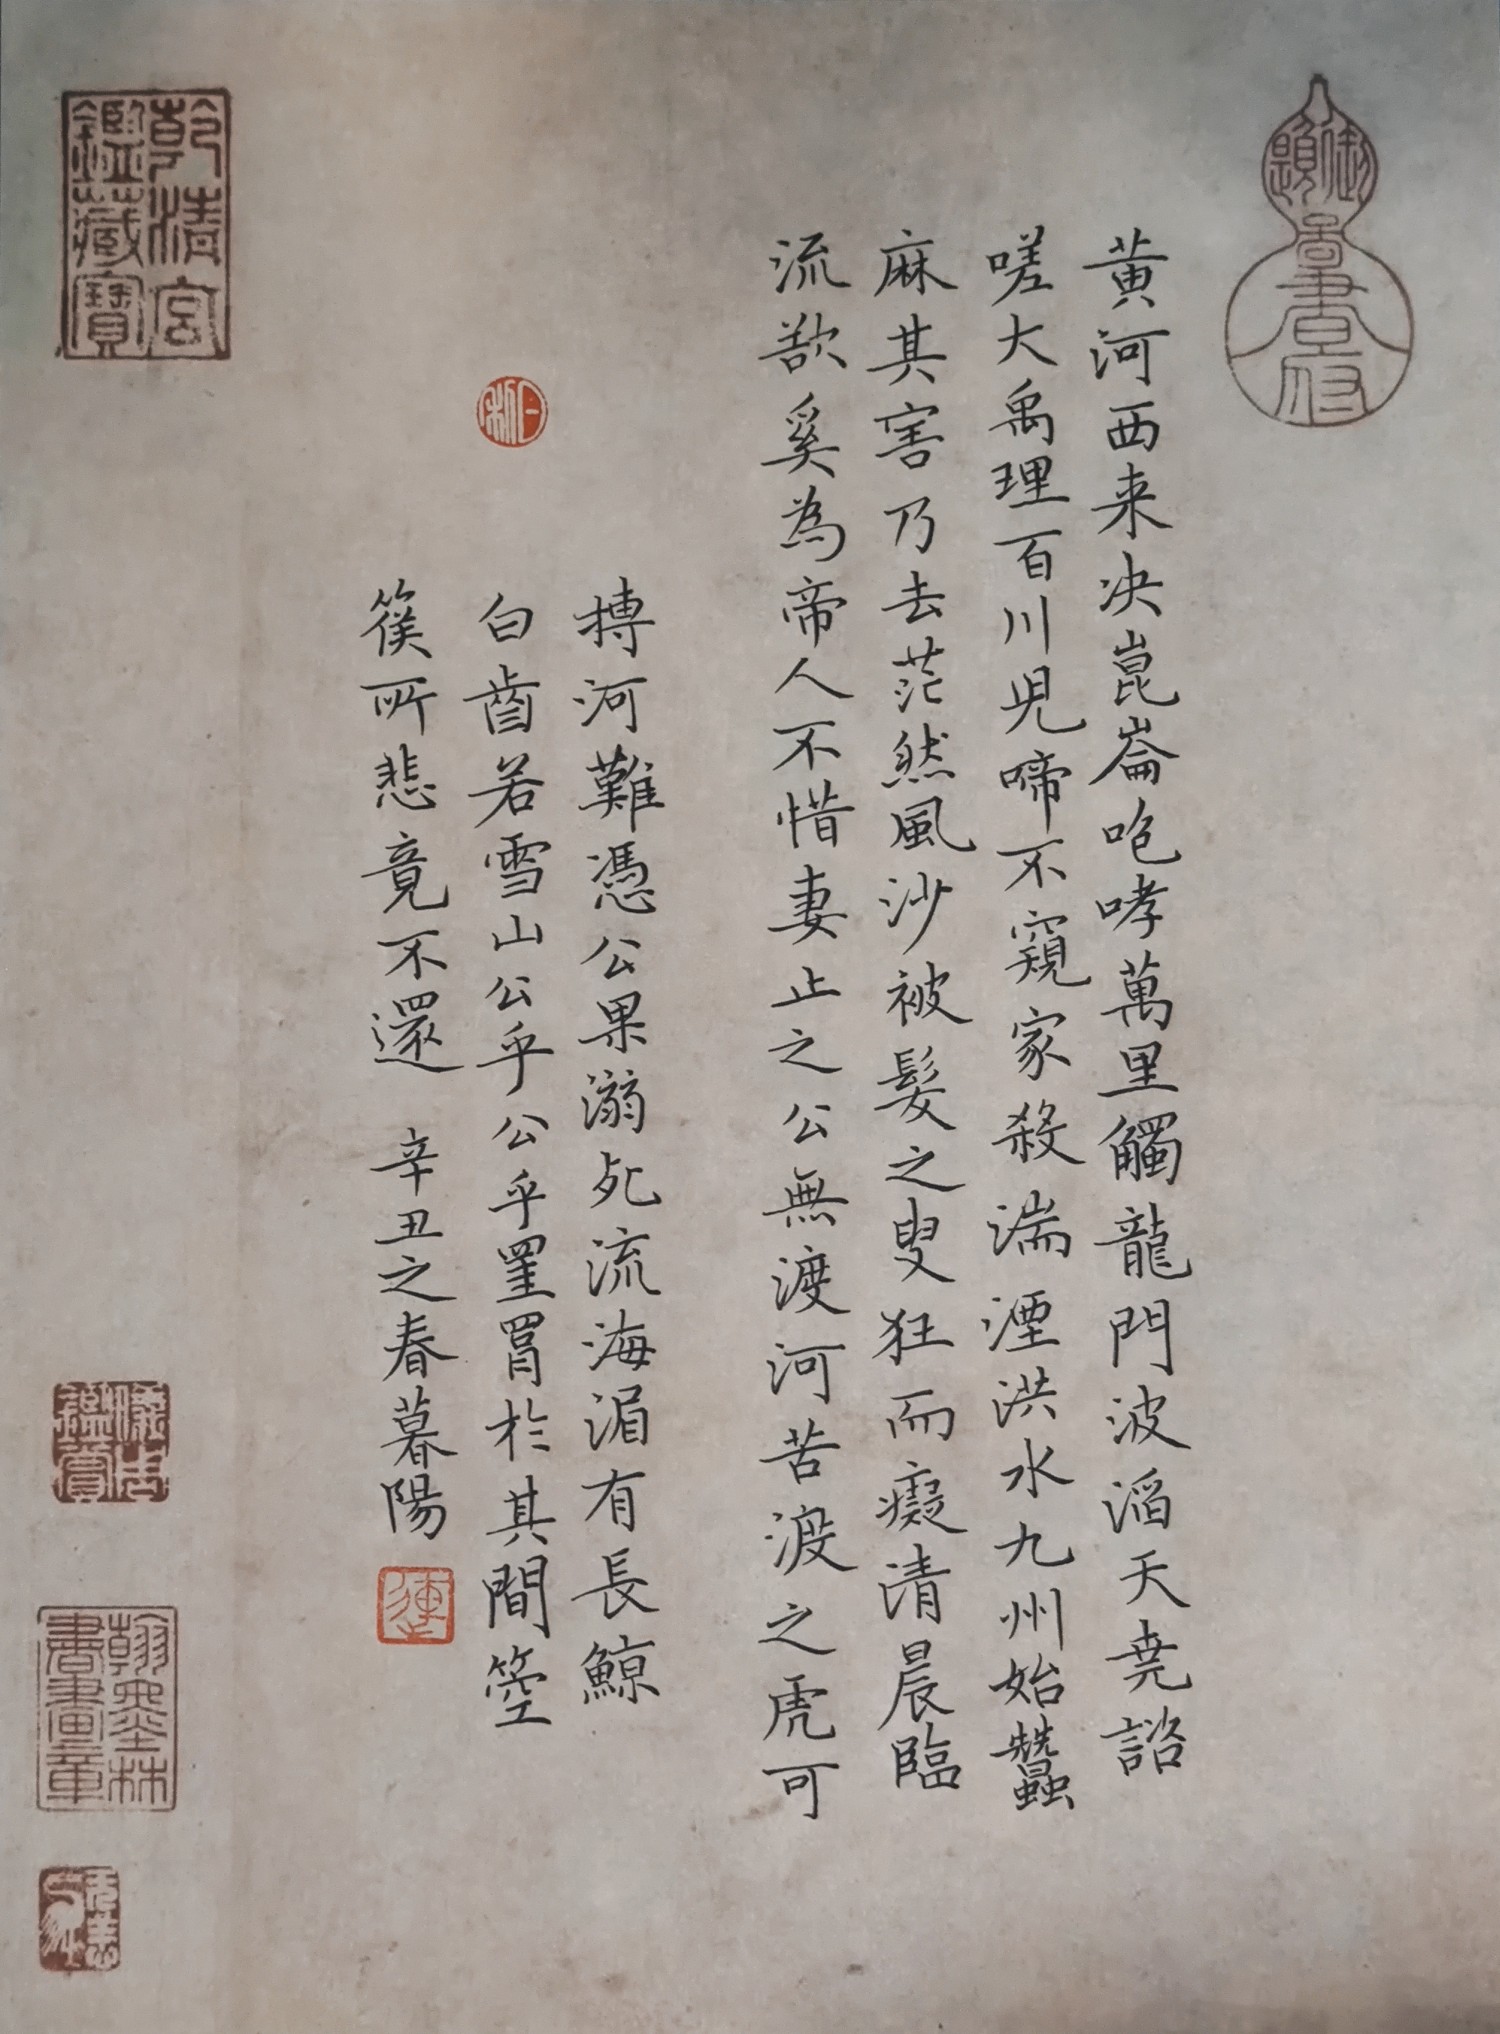 御題
書府
黄河西来决崑崙咆哮萬里觸龍門波滔天尭諮
嗟大禹理百川児啼不窺家殺湍湮洪水九州始蠶
麻其害乃去茫然風沙被髮之叟狂而癡清晨臨
流欲奚為帝人不惜妻止之公無渡河苦渡之虎可
搏河難憑公果溺死流海湄有長鯨
白齒若雪山公乎公乎罣罥於其間箜
篌所悲竟不還 辛丑之春暮陽
蓮
乾清宮
鑑藏寶
儀周
鑑賞
翰墨林
書畫章